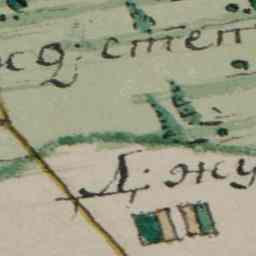 жд: степ
Д: жу